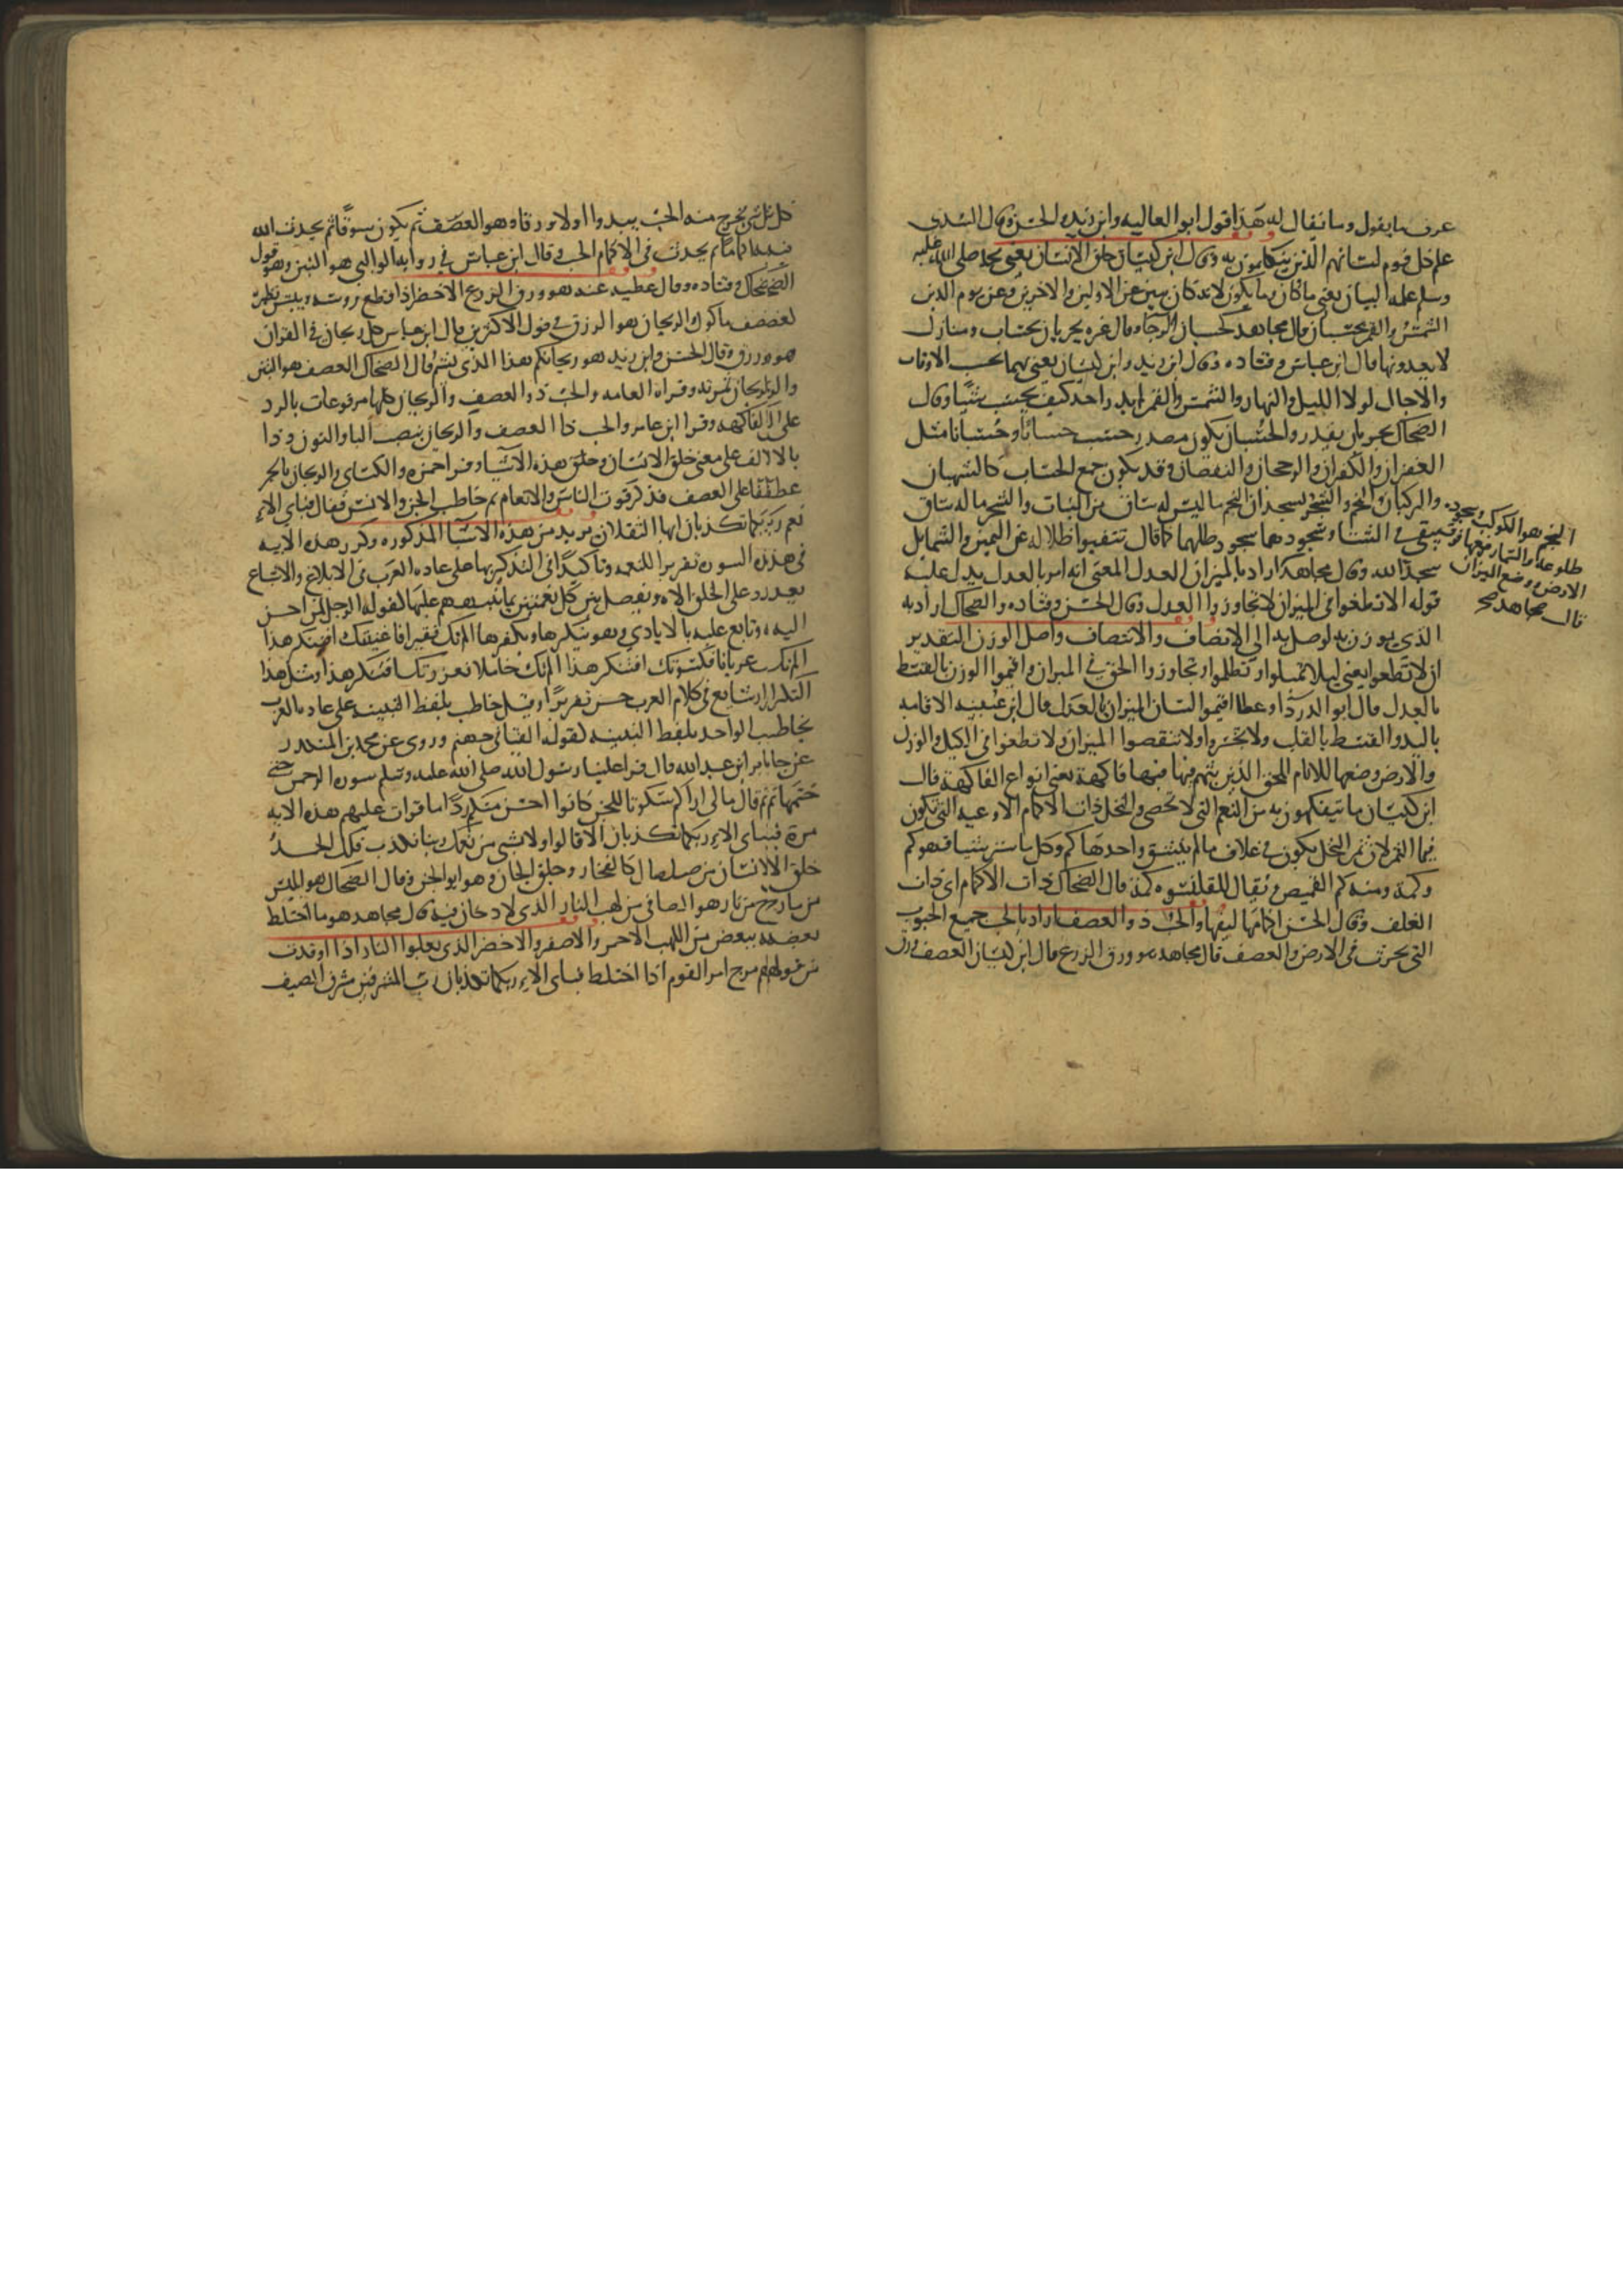 عرف ما يقول وما يقال له هذا قول ابو العاليه وابن زيد والحسن وقال السدي
علم كل قوم لسانهم الذين يتكلمون به وقال ابن كيسان خلق الانسان يعني محمد صلى الله عليه
وسلم علمه البيان يعني ما كان وما يكون لانه كان يبين عن الاولين والاخرين وعن يوم الدين
الشمس والقمر بحسبان قال مجاهد كحسبان الرحا وقال غيره يجريان بحساب ومنازل
لا يعدونها قال ابن عباس وقتاده وقال ابن زيد وابن كيسان يعني بهما يحسب الاوقات
والاجال لولا الليل والنهار والشمس والقمر لم يدر احد كيف يحسب شيا وقال
الضحاك يجريان بقدر والحسبان يكون مصدر حسب حسابا وحسبانا مثل
الغفران والكفران والرجحان والنقصان وقد يكون جمع الحساب كالشهبان
والركبان والنجم والشجر يسجدان النجم ما ليس له ساق من النبات والشجر ما له ساق
يبقى في الشتا وسجودهما سجود ظلهما كما قال تتفيوا ظلاله عن اليمين والشمايل
سجدا لله وقال مجاهد اراد بالميزان العدل المعنى انه امر بالعدل يدل عليه
قوله الا تطغوا في الميزان لا تجاوزوا العدل وقال الحسن وقتاده والضحاك اراد به
الذي يوزن به لوصل به الى الانصاف والانتصاف واصل الوزن التقدير
ان لا تطغوا يعني ليلا تميلوا وتظلموا وتجاوزوا الحق في الميزان واقيموا الوزن بالقسط
بالعدل قال ابو الدردا وعطا اقيموا لسان الميزان بالعدل قال ابن عيينه الاقامه
باليد والقسط بالقلب ولا تخسروا ولا تنقصوا الميزان ولا تطغوا في الكيل والوزن
والارض وضعها للانام للخلق الذين بثهم فيها فيها فاكهة يعني انواع الفاكهة قال
ابن كيسان ما يتفكهون به من النعم التي لا تحصى والنخل ذات الاكمام الاوعية التي تكون
فيها الثمر لان ثمر النخل يكون في غلاف ما لم ينشق واحدها كم وكل ما ستر شيا فهو كم
وكمة ومنه كم القميص ويقال للقلنسوه كمة قال الضحاك ذات الاكمام اي ذات
الغلف وقال الحسن اكمامها ليفها والحب ذو العصف اراد بالحب جميع الحبوب
التي يحرث في الارض والعصف قال مجاهد هو ورق الزرع قال ابن كيسان العصف ورق
النجم هو الكوكب وسجوده
طلوعه
الارض ووضع الميزان
قال مجاهد صح
كل شي يخرج منه الحب يبدوا اولا ورقا وهو العصف ثم يكون سوقا ثم يحدث الله
فيه اكماما ثم يحدث في الاكمام الحب وقال ابن عباس في رواية الوالبي هو التبن وهو قول
الضحاك وقتاده وقال عطيه عنه هو ورق الزرع الاخضر اذا قطع روسه ويبس نظيره
كعصف ماكول والريحان هو الرزق في قول الاكثرين قال ابن عباس كل ريحان في القران
هو رزق وقال الحسن وابن زيد هو ريحانكم هذا الذي يشم وقال الضحاك العصف هو التبن
والريحان ثمرته وقراة العامه والحب ذو العصف والريحان كلها مرفوعات بالرد
على الفاكهه وقرا ابن عامر والحب ذا العصف والريحان بنصب البا والنون وذا
بالالف على معنى خلق الانسان وخلق هذه الاشيا وقرا حمزه والكساي والريحان بالجر
عطفا على العصف فذكر قوت الناس والانعام ثم خاطب الجن والانس فقال فباي الاء
نعم ربكما تكذبان ايها الثقلان يريد من هذه الاشيا المذكوره وكرر هذه الايه
في هذه السوره تقريرا للنعمه وتاكيدا في التذكير بها على عادة العرب في الابلاغ والاشباع
يعدد على الخلق الاه ويفصل بين كل نعمتين بما ينبههم عليها كقول الرجل لمن احسن
اليه وتابع عليه بالايادي وهو ينكرها ويكفرها الم تك فقيرا فاغنيتك افتنكر هذا
الم تك عريانا فكسوتك افتنكر هذا الم تك خاملا فعززتك افتنكر هذا ومثل هذا
التكرار شايع في كلام العرب حسن تقريرا وقيل خاطب بلفظ التثنيه على عادة العرب
تخاطب الواحد بلفظ التثنيه كقوله القيا في جهنم وروى عن محمد بن المنكدر
عن جابر ابن عبد الله قال قرا علينا رسول الله صلى الله عليه وسلم سورة الرحمن حتى
ختمها ثم قال ما لي اراكم سكوتا للجن كانوا احسن منكم ردا ما قرات عليهم هذه الايه
مرة فباي الاء ربكما تكذبان الا قالوا ولا بشي من نعمك ربنا نكذب فلك الحمد
خلق الانسان من صلصال كالفخار وخلق الجان وهو ابو الجن وقال الضحاك هو ابليس
من مارج من نار هو الصافي من لهب النار الذي لا دخان فيه وقال مجاهد هو ما اختلط
بعضه ببعض من اللهب الاحمر والاصفر والاخضر الذي يعلوا النار اذا اوقدت
من قولهم مرج امر القوم اذا اختلط فباي الاء ربكما تكذبان رب المشرقين مشرق الصيف